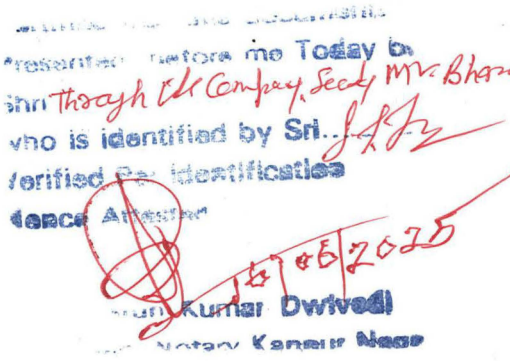 Presented before me Today by
Shri Through its Company Secy Mr. Bhara
who is identified by Sri.....
Verified Per Identification
Hence Attested
16/06/2025
Kumar Dwivedi
Notary Kanpur Naga